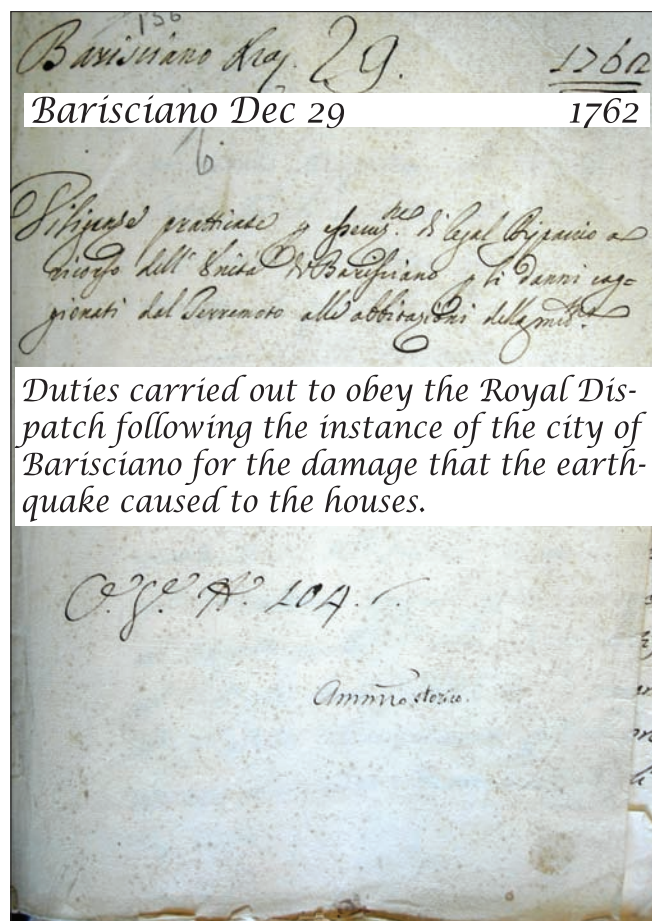 156
Barisciano 29. 1762
Barisciano Dec 29 1762
6
Diligenze pratticate p di
ricorso dell' di Barisciano p li danni cag=
gionati dal Terremoto alle abbitazioni della
Duties carried out to obey the Royal Dis-
patch following the instance of the city of
Barisciano for the damage that the earth-
quake caused to the houses.
104.
storico.